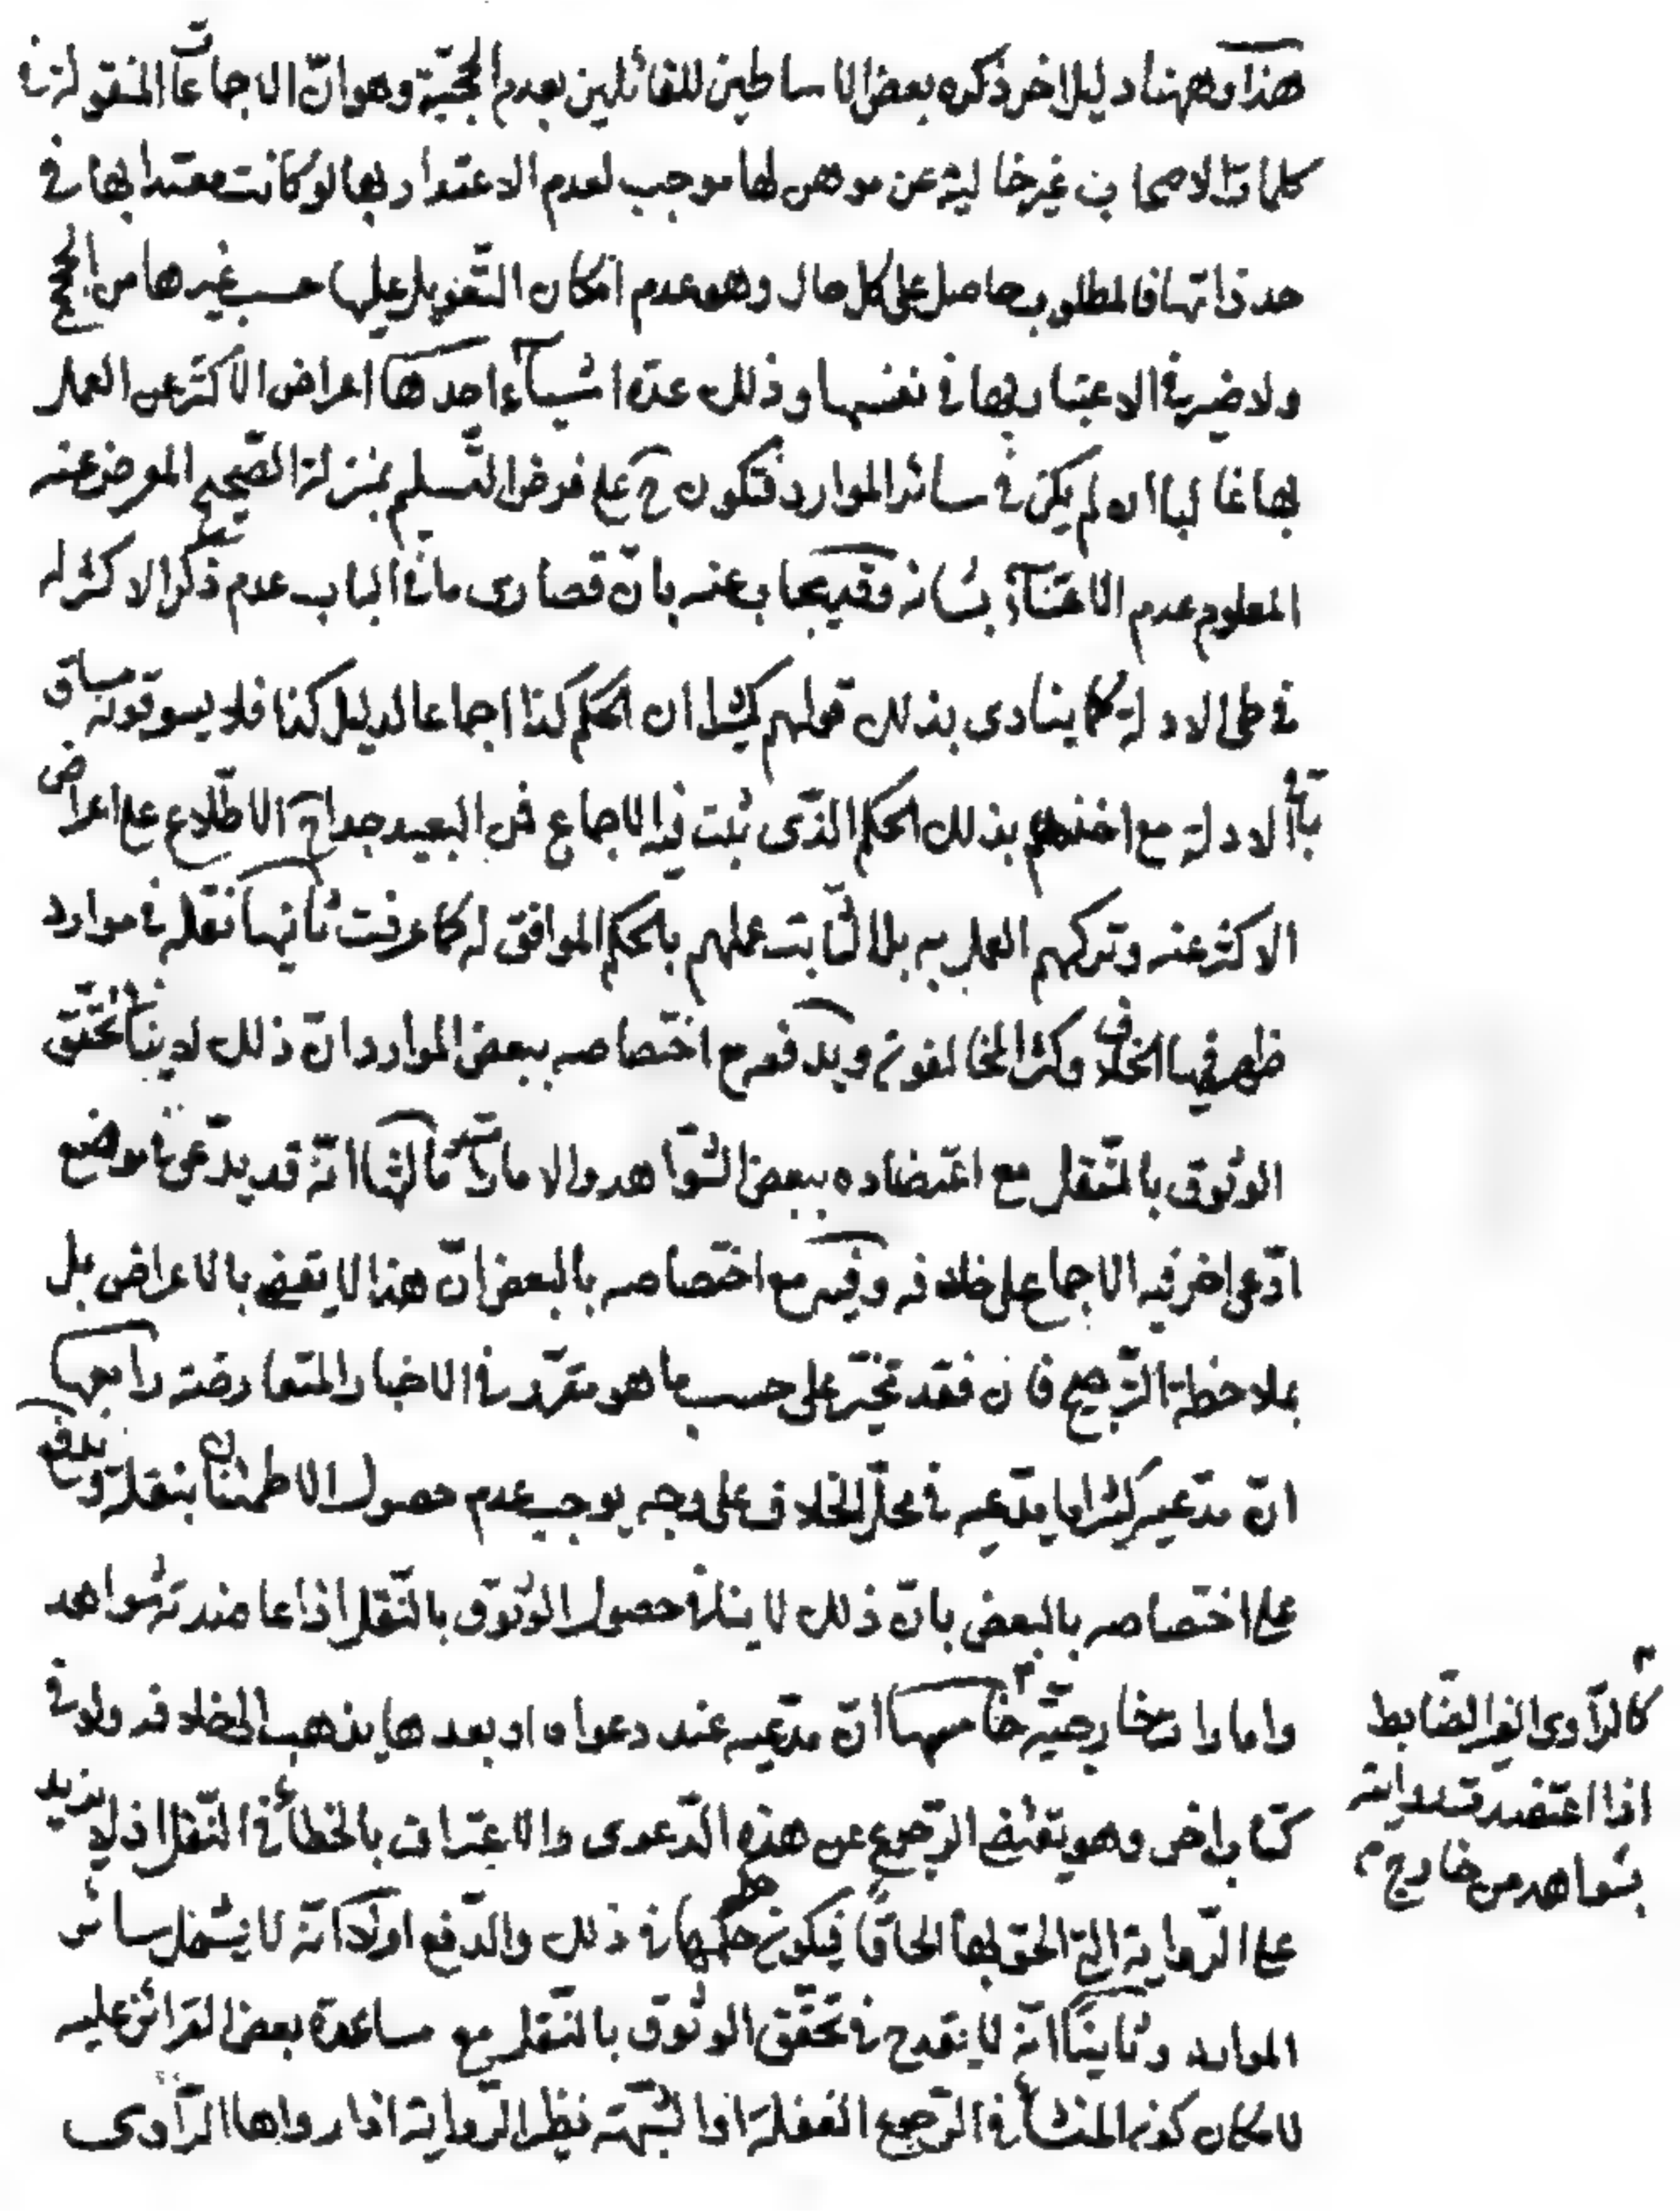 هذا وههنا دليل اخر ذكره بعض الاساطين للقائلين بعدم الحجيّة وهو انّ الاجماعات المنقولة في
كلمات الاصحاب غير خالية عن موهن لها موجب لعدم الاعتداد بها لو كانت معتدا بها في
حد ذاتها فالمطلوب حاصل على كل حال وهو عدم امكان التّعويل عليها حسب غيرها من الحجج
ولا ضير في الاعتبار بها في نفسها وذلك عدة اشياء احدها اعراض الاكثر عن العمل
بها غالبا ان لم يكن في سائر الموارد فتكون ح على فرض التّسليم بمنزلة الصّحيح المعرض عنه
المعلوم عدم الاعتناء بشانه وقد يجاب عنه بانّ قصارى ما في الباب عدم ذكر الاكثر له
في طى الادلة كما ينادى بذلك قولهم كثيرا ان الحكم كذا اجماعا لدليل كذا فلا يسوقونه مساق
باقي الادلة مع اخذهم بذلك الحكم الذّى ثبت فيه الاجماع فمن البعيد جدا ح الاطّلاع على اعراض
الاكثر عنه وتركهم العمل به بل الثّابت عملهم بالحكم الموافق له كما عرفت ثانيها نقله في موارد
ظهر فيها الخلاف وكثر المخالفون ويدفعه مع اختصاصه ببعض الموارد انّ ذلك لا ينافي تحقّق
الوثوق بالنّقل مع اعتضاده ببعض الشّواهد والامارات ثالثها انّه قد يدّعى في موضع
ادّعى اخر فيه الاجماع على خلافه وفيه مع اختصاصه بالبعض انّ هذا لا يقضى بالاعراض بل
بملاحظة التّرجيح فان فقد تخيّر على حسب ما هو مقرّر في الاخبار المتعارضة رابعها
انّ مدّعيه كثيرا ما يدّعيه في محلّ الخلاف على وجه يوجب عدم حصول الاطمئنان بنقله ويدفع
على اختصاصه بالبعض بانّ ذلك لا ينافي حصول الوثوق بالنّقل اذا عاضدته شواهد
وامارات خارجيّة خامسها انّ مدّعيه عند دعواه او بعدها يذهب الى خلافه ولو في
كتاب اخر وهو يقتضى الرّجوع عن هذه الدّعوى والاعتراف بالخطأ في النّقل اذ لا يزيد
على الرّواية التى الحق بها الحاقا فيكون حكمه حكمها في ذلك والدّفع اولا انّه لا يشمل سائر
الموارد وثانيا انّه لا يقدح في تحقّق الوثوق بالنّقل مع مساعدة بعض القرائن عليه
لامكان كون المنشأ في الرّجوع الغفلة او الشّبهة نظير الرّواية اذا رواها الرّاوى
كالرّاوى الغير الضّابط
اذا اعتضدت روايته
بشواهد من خارج م